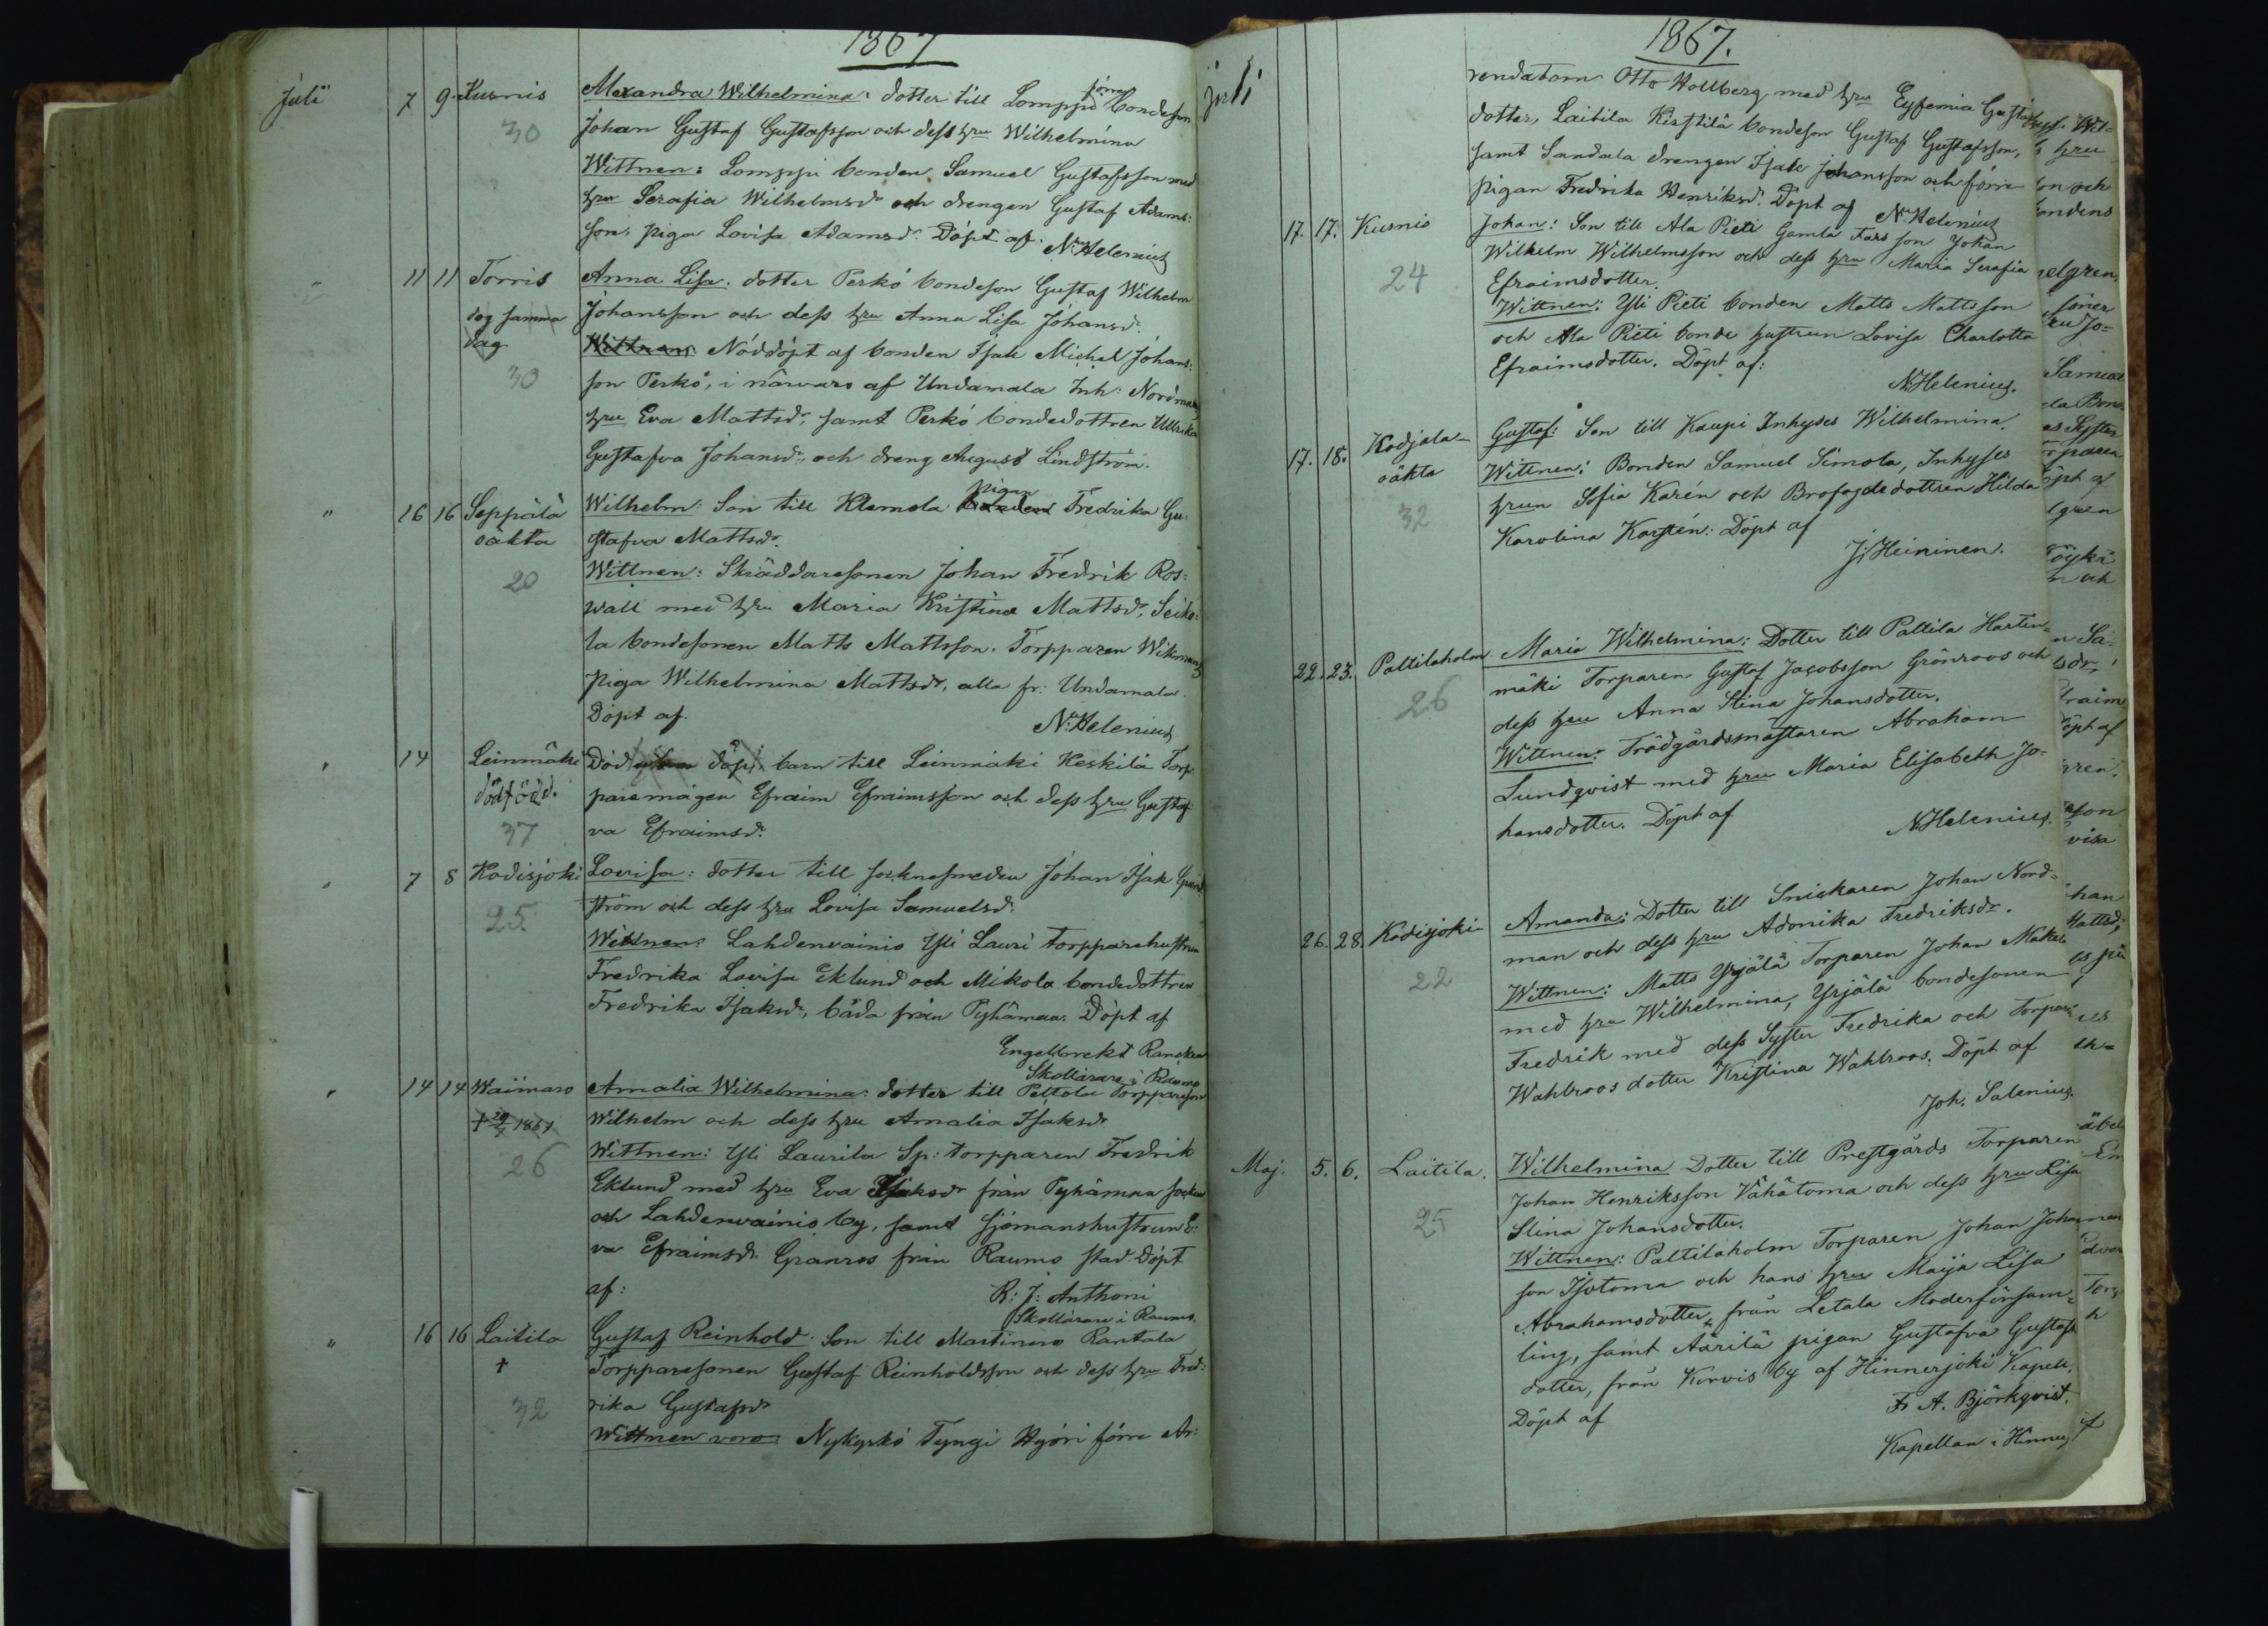 1867
Juli 7 9 Kusnis Alexandra Wilhelmina: dotter till Lomppi förra bondeson
30 Johan Gustaf Gustafsson och dess hru Wilhelmina
Wittnen: Lomppi bonden Samuel Gustafsson med
hru Serafia Wilhelmsdr och drengen Gustaf Adams-
son, piga Lovisa Adamsdr. Döpt af. N. Helenius
" 11 11 Torris Anna Lisa. dotter Perkö bondeson Gustaf Wilhelm
dog samma Johansson och dess hru Anna Lisa Johansdr.
dag Wittnen: Nöddöpt af bonden Isak Michel Johans-
30 son Perkö, i närvaro af Undamala Inh: Nordmans
hru Eva Mattsdr, samt Perkö bondedottren Ullrika
Gustafva Johansdr, och dreng August Lindström.
" 16 16 Seppälä Wilhelm: Son till Klemola pigan Fredrika Gu-
oäkta stafva Mattsdr.
20 Wittnen: Skräddaresonen Johan Fredrik Ros-
wall med hru Maria Kristina Mattsdr, Seiko-
la bondesonen Matts Mattsson. Torpparen Wikmans
piga Wilhelmina Mattsdr, alla fr: Undamala.
Döpt af. N. Helenius
" 14 Leinmäki Död döpt barn till Leinmäki Heskilä Torp-
dödfödd. paremågen Efraim Efraimsson och dess hru Gustaf-
37 va Efraimsdr.
" 7 8 Kodisjoki Lovisa: dotter till socknesmeden Johan Isak
25 ström och dess hru Lovisa Samuelsdr.
Wittnen: Lahdenvainio Yli Lauri torpparehustrun
Fredrika Lovisa Eklund och Mikola bondedottren
Fredrika Isaksdr, båda från Pyhämaa. Döpt af
Engelbrekt Rancken
Skollärare i Raumo
" 14 14 Waimaro Amalia Wilhelmina: dotter till Peltola Torppareson
† 29/7 1867 Wilhelm och dess hru Amalia Isaksdr
26 Wittnen: Yli Laurila Sp: torpparen Fredrik
Eklund med hru Eva Isaksdr från Pyhämaa socken
och Lahdenvainio by, samt sjömanshustrun E-
va Efraimsdr Granros från Raumo stad. Döpt
af: R: J: Anthoni
Skollärare i Raumo.
" 16 16 Laitila Gustaf Reinhold: Son till Martinero Rantala
† Torpparesonen Gustaf Reinholdsson och dess hru Fred-
32 rika Gustafsdr
Wittnen voro: Nykyrkö Tyngi Hyöri förre Ar-
1867.
Juli rendatorn Otto Hollberg med hru Eyfemia Gustafs
dotter, Laitila Kirstilä bondeson Gustaf Gustafsson,
samt Sandala drengen Isak Johansson och förre
pigan Fredrika Henriksdr. Döpt af N. Helenius
17. 17. Kusnis Johan: Son till Ala Pieti Gamla Fars son Johan
24 Wilhelm Wilhelmsson och dess hru Maria Serafia
Efraimsdotter.
Wittnen: Yli Pieti bonden Matts Mattsson
och Ala Pieti bonde hustrun Lovisa Charlotta
Efraimsdotter. Döpt af:
N. Helenius.
17. 18. Kodjala Gustaf: Son till Kaupi Inhyses Wilhelmina.
oäkta Wittnen: Bonden Samuel Simola, Inhyses
32 hrun Sofia Karén och Brofogdedottren Hilda
Karolina Karstén: Döpt af
J. Heininen.
22. 23. Paltilaholm Maria Wilhelmina: Dotter till Paltila Hartin-
26 mäki Torparen Gustaf Jacobsson Grönroos och
dess hru Anna Stina Johansdotter.
Wittnen: Trädgårdsmästaren Abraham
Lundqvist med hru Maria Elisabeth Jo-
hansdotter. Döpt af N. Helenius.
26. 28. Kodisjoki Amanda: Dotter till Snickaren Johan Nord-
22 man och dess hru Adonika Fredriksdr.
Wittnen: Matts Yrjälä Torparen Johan Makela
med hru Wilhelmina, Yrjälä bondesonen
Fredrik med dess Syster Fredrika och Torpar
Wahlroos dotter Kristina Wahlroos. Döpt af
Joh. Salenius.
Maj. 5. 6. Laitila. Wilhelmina Dotter till Prestgårds Torparen
25 Johan Henriksson Vähätoma och dess hru Lisa
Stina Johansdotter.
Wittnen: Paltilaholm Torparen Johan Johans
son Isotoma och hans hru Maija Lisa
Abrahamsdotter, från Letala Moderförsam-
ling, samt Äärilä pigan Gustafva Gustafs
dotter, från Korvis by af Hinnerjoki Kapell.
Döpt af Fr A. Björkqvist.
Kapellan i Hinner